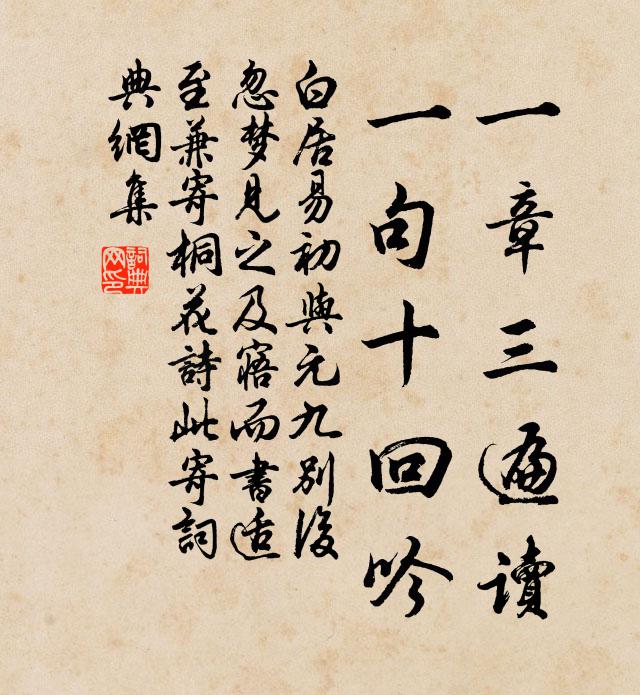 一章三遍讀
一句十回吟
白居易初與元九別後
忽梦見之及寤而書适
至兼寄桐花詩此寄詞
典網集
詞典
网印